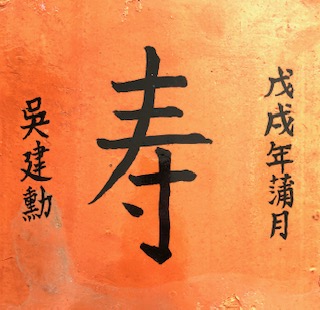 戊戌年蒲月
寿
吳建勳